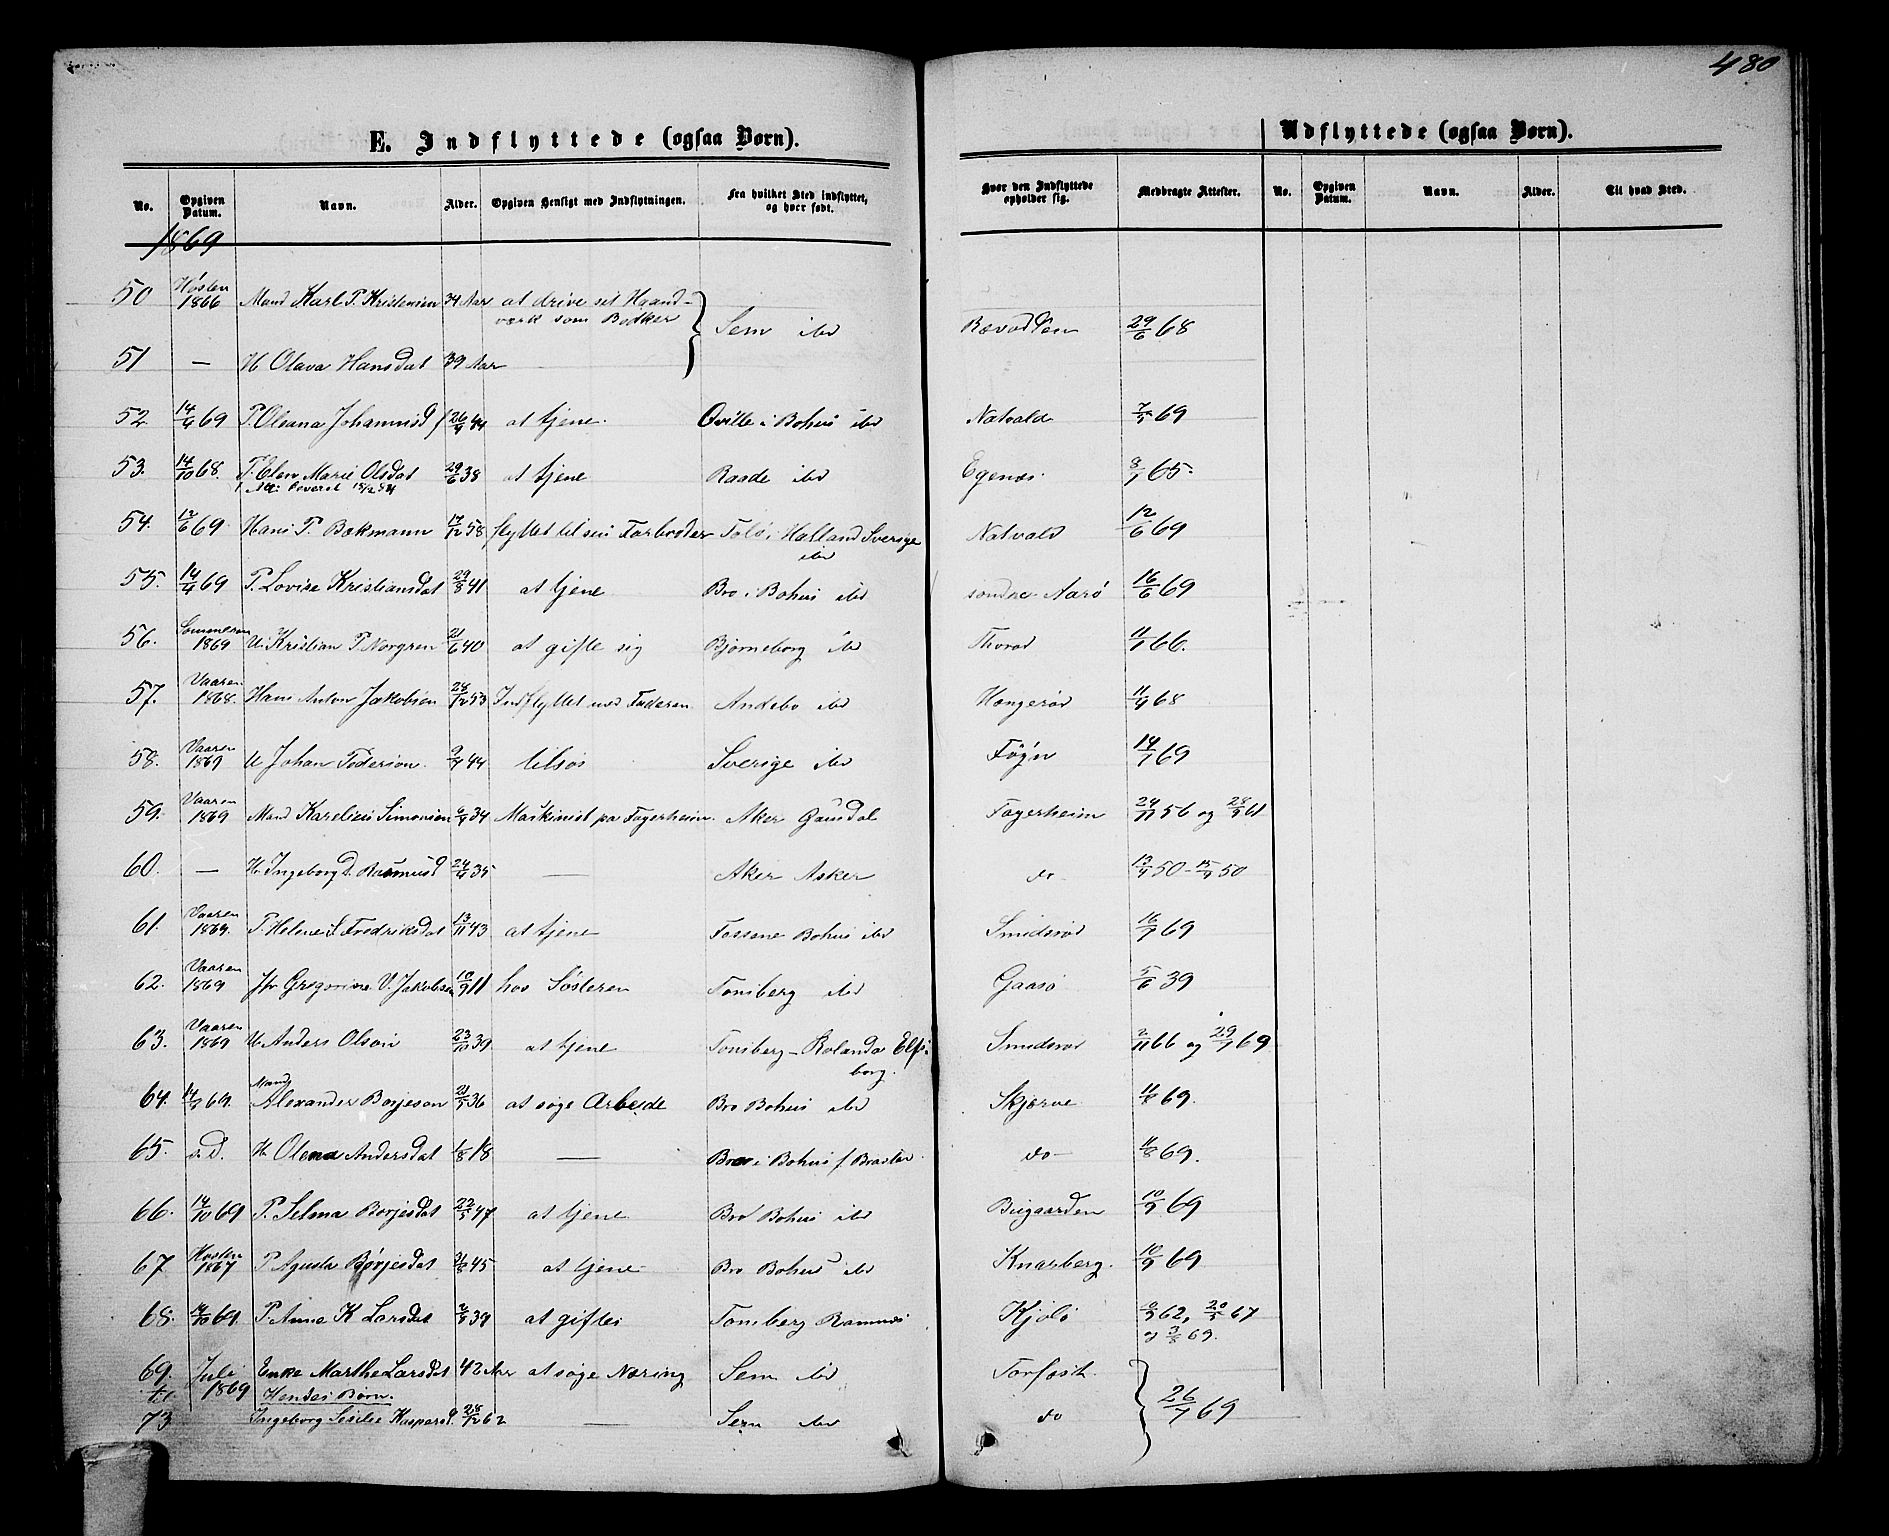 480
E. Indflyttede (ogsaa Børn).
Udflyttede (ogsaa Børn).
No. Opgiven Datum. Navn. Alder. Opgiven Hensigt med Indflytningen. Fra hvilket Sted indflyttet, og hvor født. Hvor den Indflyttede opholder sig. Medbragte Attester. No. Opgiven Datum. Navn. Alder. Til hvad Sted.
1869
50 Høsten 1866 Mand Karl P. Kristensen 34 Aar at drive sit Haand-
værk som Bødker Sem ibd 29/6 68
51 — H. Olava Hansdat 39 Aar
52. 14/4 69 P. Oleana Johannisd 26/4 44 at tjene. Qville i Bohus ibd Natvald 69
53. 14/10 68. P. Elen Marie Olsdat 29/6 38 at tjene Raade ibd Egenæs 65.
54. 69 Hans P. Bækmann 58 flyttet til sin Farbroder i Halland Sverige ibd Natvald 12/6 69
55. 14/4 69 P. Lovise Kristiansdat 29/8 41 at tjene Bro i Bohus ibd søndre Aarø 16/6 69
56. Sommeren 1869 U. Kristian P. Norgren 21/6 40 at gifte sig Bjørneborg ibd Thorød 66.
57. Vaaren 1868. Hans Anton Jakobsen 28/12 53 Indflyttet med Faderen Andebo ibd Hengerød 68
58. Vaaren 1869 U Johan Pedersøn 44 tilsøs Sverige ibd Føyn 69
59. Vaaren 1869 Mand Karelius Simonsen 34 Maskinist paa Fagerheim. Aker Gausdal Fagerheim 24/11 56 og 61
60. — H. Ingeborg D. Rasmusd 35 — Aker Asker do 50 - 50
61. Vaaren 1869. P. Helene S Fredriksdat 13/11 43 at tjene Fossene Bohus ibd Smidsrød 69
62. Vaaren 1869 Jfr Gregorine V. Jakobsen 11 hos Søsteren Tønsberg ibd Gaasø 5/6 39
63. Vaaren 1869 U. Anders Olson 23/10 39. at tjene Tønsberg - Rolanda Elfs-
borg. Smidsrød 2/11 66 og 69
64. 69. Mand Alexander Børjeson 36 at søge Arbeide Bro Bohus ibd Skjerve 69.
65. d.D. H. Olena Andersdat 18 — Bro i Bohus f. do 11/8 69.
66. 14/10 69 P. Selma Børjesdat 47 at tjene Bro Bohus ibd Bugaarden 69
67 Høsten 1867 P. Agusta Børjesdat 45 at tjene Bro Bohus ibd Knarberg. 69
68. 14/10 69. P. Anna K Larsdat 39 at giftes Tønsberg Ramnæs Kjølø 62, 67
og 69.
69. Juli 1869 Enke Marthe Larsdat 42 Aar at søge Næring Sem ibd
til Hendes Børn.
73 Ingeborg Sesilie Kaspersd. 28/12 62 — Sem ibd do 26/7 69